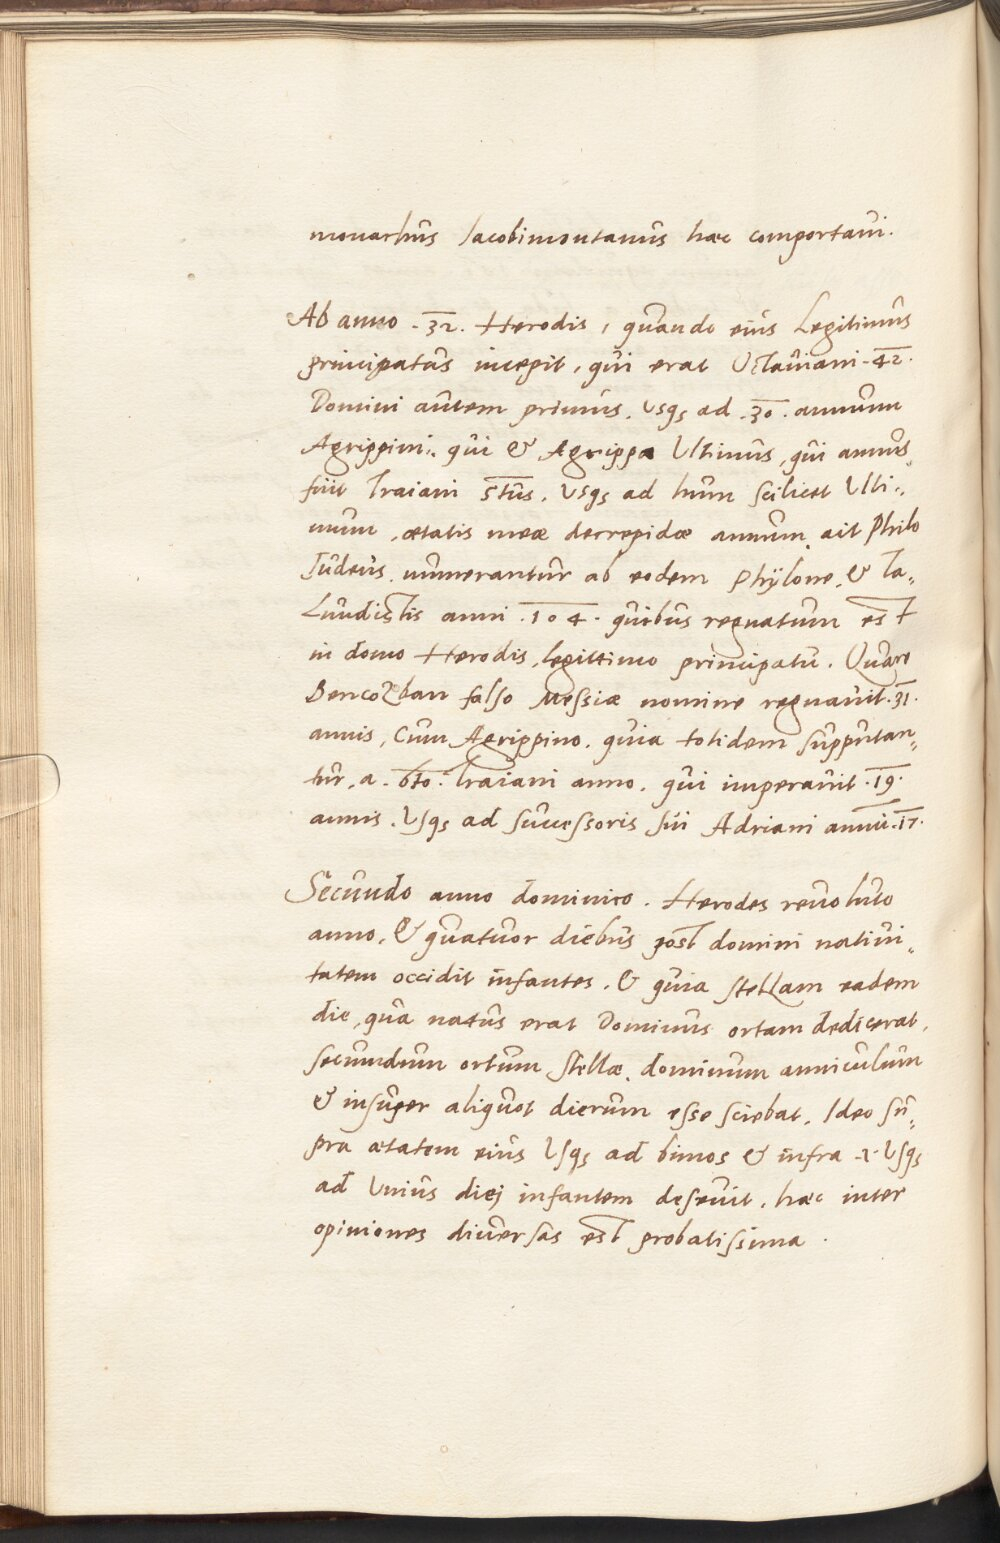 monarhus Iacobimontanus hæc comportavi.
Ab anno .32. Herodis, quando eius Legitimus
principatus incepit, qui erat Octaviani .42.
Domini autem primus. Usqȝ ad .30. annum
Agrippini. qui & Agrippa Ultimus, qui annus
fuit Traiani 5tus. Usqȝ ad hunc scilicet Ulti„
mum, ætatis meæ decrepidæ annum, ait Philo
Iudeus. numerantur ab eodem Phÿlone, & Ta„
Lmudistis anni .104. quibus regnatum est
in domo Herodis, legittimo principatu. Quare
Bencozban falso Messiæ nomine regnavit .31.
annis, Cum Agrippino. quia totidem supputan„
tur, a .6to. Traiani anno. qui imperavit .19.
annis. Usqȝ ad successoris sui Adriani annū .17.
Secundo anno dominico. Herodes revoluto
anno, & quatuor diebus post domini nativi„
tatem occidit infantes. & quia stellam eadem
die, qua natus erat Dominus ortam dedicerat,
secundum ortum stellæ, dominum anniculum
& insuper aliquot dierum esse sciebat. Ideo su„
pra ætatem eius Usqȝ ad bimos & infra .2. Usqȝ
ad Unius diej infantem desevit. hæc inter
opiniones diversas est probatissima.